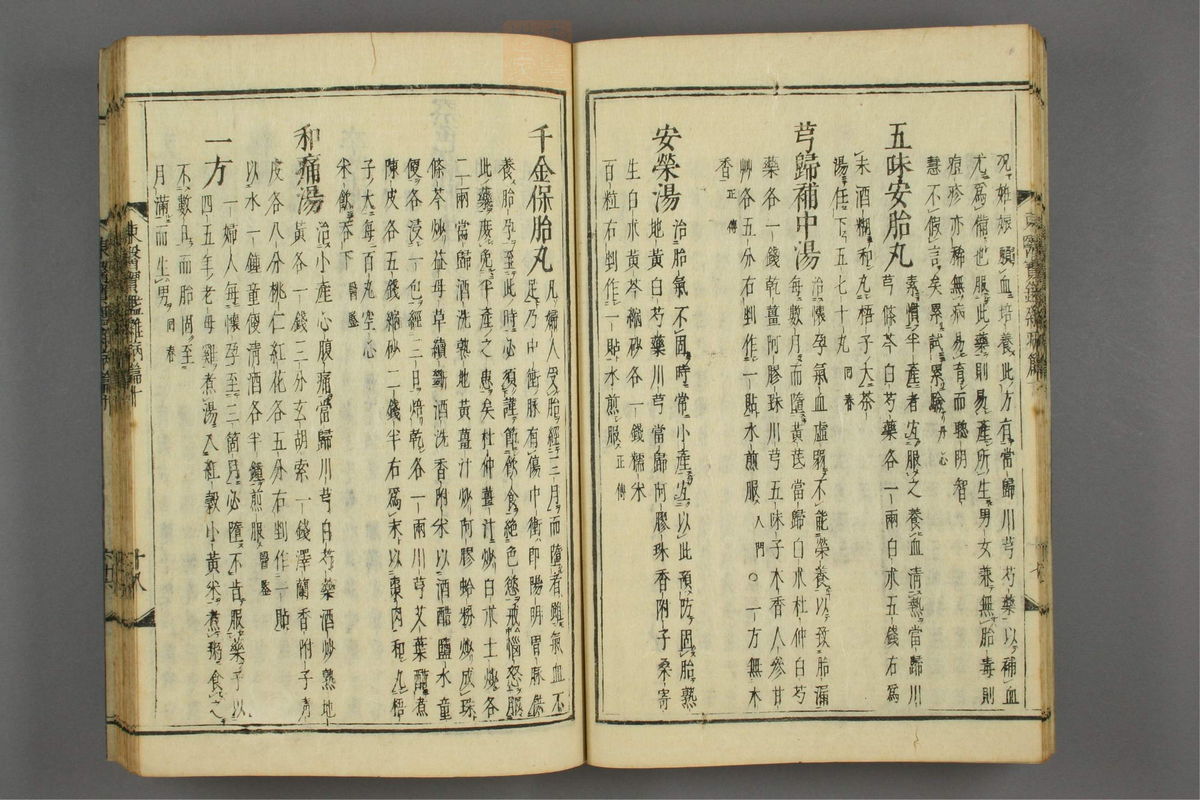 況姙娠賴血培養此方有當歸川芎芍藥以補血
尤爲備也服此藥則易產所生男女兼無胎毒則
痘疹亦稀無病易育而聰明智
慧不假言矣累試累驗丹心
五味安胎丸素慣半產者宜服之養血清熱當歸川
芎條芩白芍藥各一兩白朮五錢右爲
末酒糊和丸梧子大茶
湯任下五七十丸回春
芎歸補中湯治懷孕氣血虛弱不能榮養以致胎漏
每數月而墮黃芪當歸白朮杜仲白芍
藥各一錢乾薑阿膠珠川芎五味子木香人參甘
艸各五分右剉作一貼水煎服入門○一方無木
香正傳
安榮湯治胎氣不固時常小產宜以此預防固胎熟
地黃白芍藥川芎當歸阿膠珠香附子桑寄
生白朮黃芩縮砂各一錢糯米
百粒右剉作一貼水煎服正傳
千金保胎丸凡婦人受胎經三月而墮者雖氣血不
足乃中衝脈有傷中衝即陽明胃脈供
養胎孕至此時必須謹節飮食絕色慾戒惱怒服
此藥庶免半產之患矣杜仲薑汁炒白朮土炒各
二兩當歸酒洗熟地黃薑汁炒阿膠蛤粉炒成珠
條芩炒益母草續斷酒洗香附米以酒醋鹽水童
便各浸一包經三日焙乾各一兩川芎艾葉醋煮
陳皮各五錢縮砂二錢半右爲末以棗肉和丸梧
子大每百丸空心
米飮吞下醫鑑
和痛湯治小產心腹痛當歸川芎白芍藥酒炒熟地
黃各一錢三分玄胡索一錢澤蘭香附子靑
皮各八分桃仁紅花各五分右剉作一貼
以水一鍾童便淸酒各半鍾煎服醫鑑
一方一婦人每懷孕至三箇月必墮不肯服藥予以
四五年老母雞煮湯入紅穀小黃米煮粥食之
不數旦而胎固至
月滿而生男回春
東醫寶鑑雜病篇十
十八